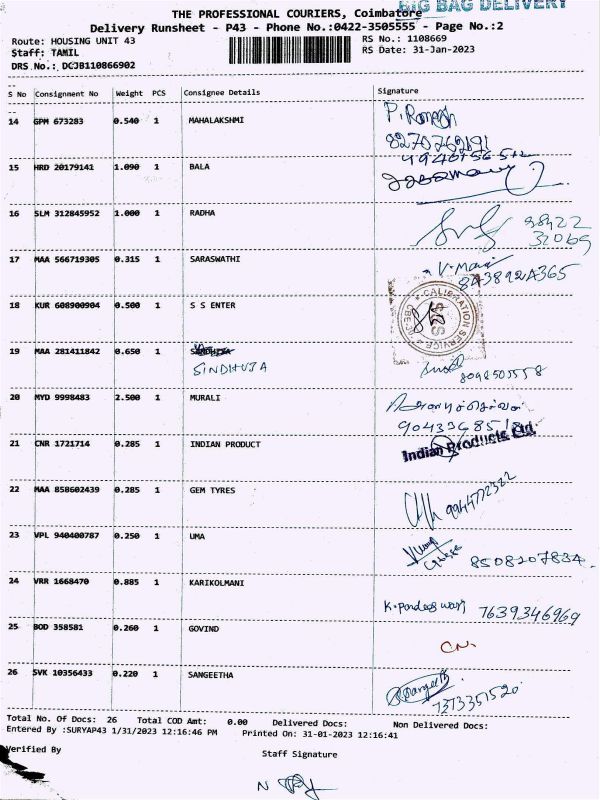 BIG BAG DELIVERY
THE PROFESSIONAL COURIERS, Coimbatore
Delivery Runsheet - P43 - Phone No.:0422-3505555 - Page No.:2
Route: HOUSING UNIT 43 RS No.: 1108669
Staff: TAMIL RS Date: 31-Jan-2023
DRS No.: DCJB110866902
S No Consignment No Weight PCS Consignee Details Signature
14 GPM 673283 0.540 1 MAHALAKSHMI P. Ramesh
8270762691
15 HRD 20179141 1.090 1 BALA
16 SLM 312845952 1.000 1 RADHA
32069
17 MAA 566719305 0.315 1 SARASWATHI V. Mani
843892A365
18 KUR 608900904 0.500 1 S S ENTER
CALIBRATION SERVICE
19 MAA 281411842 0.650 1
SINDHUJA 8098505558
20 MYD 9998483 2.500 1 MURALI
21 CNR 1721714 0.285 1 INDIAN PRODUCT Indian Products Ltd.
22 MAA 858602439 0.285 1 GEM TYRES 9944772322
23 VPL 940400787 0.250 1 UMA 8508207834
24 VRR 1668470 0.885 1 KARIKOLMANI K. Pandeeswari 7639346969
25 BOD 358581 0.260 1 GOVIND CN.
26 SVK 10356433 0.220 1 SANGEETHA Sangeeth
7373351520
Total No. Of Docs: 26 Total COD Amt: 0.00 Delivered Docs: Non Delivered Docs:
Entered By :SURYAP43 1/31/2023 12:16:46 PM Printed On: 31-01-2023 12:16:41
Verified By Staff Signature